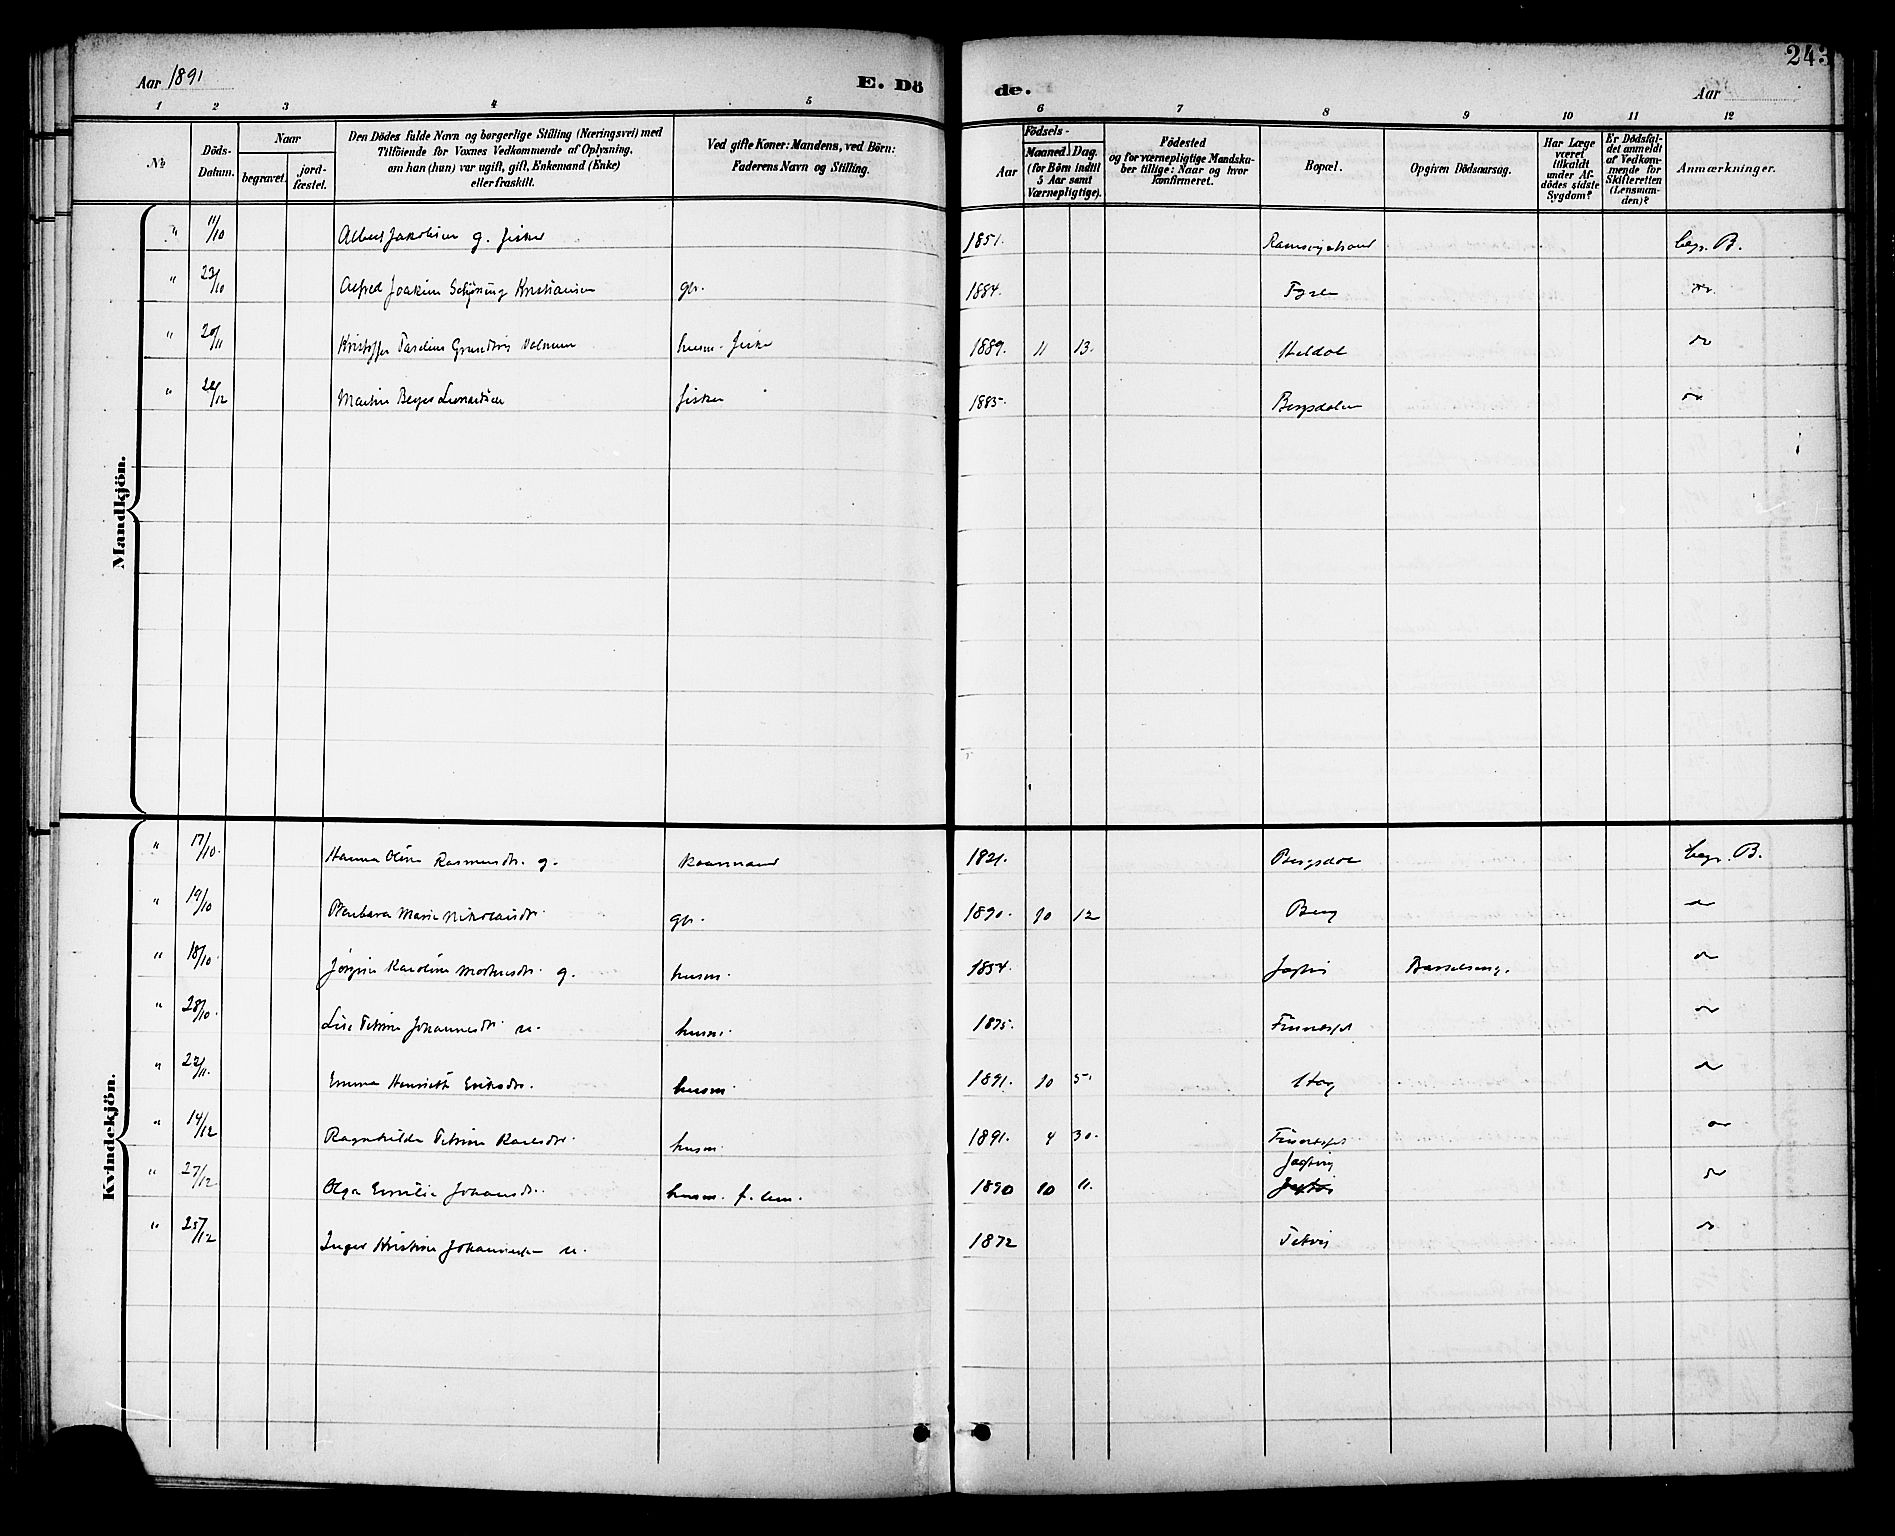 243
Aar 1891
E. Dö
de.
Aar
1 2 3 4 5 6 7 8 9 10 11 12
№
Döds-
Datum.
Naar
begravet.
jord-
fæstet.
Den Dödes fulde Navn og borgerlige Stilling (Næringsvei) med
Tilföiende for Voxnes Vedkommende af Oplysning,
om han (hun) var ugift, gift, Enkemand (Enke)
eller fraskilt.
Ved gifte Koner: Mandens, ved Börn:
Faderens Navn og Stilling.
Födsels-
Aar
Maaned.
Dag.
(for Börn indtil
5 Aar samt
Værnepligtige).
Födested
og for værnepligtige Mandska-
ber tillige: Naar og hvor
konfirmeret.
Bopæl.
Opgiven Dödsaarsag.
Har Læge
været
tilkaldt
under Af-
dödes sidste
Sygdom?
Er Dödsfal-
det anmeldt
af Vedkom-
mende for
Skifteretten
(Lensman-
den)?
Anmærkninger.
Mandkjön.
" 11/10 Albert Jakobsen g. fisker 1851. begr. B.
" 23/10 Alfred Joakim Schjøning Kristiansen gbr. 1884. do
" 20/11 Kristoffer Parelius Grundtvig husm. fisker 1889. 11 13. do
" 12 Martin Beyer Leonardsen fisker 1885. Bergsdalen do
Kvindekjön.
" 17/10. Hanna Oline Rasmusdtr. g. kaarmand 1821. Bergsdal begr. B.
" 19/10 Barbara Marie Nikolaisdtr. gbr. 1890. 10 12 Berg do
" 18/10. Karoline g. husm. 1854. Barselseng. do
" 28/10. Petrine Johannesdtr. u. husm. 1875. do
" 11. Emma Henriette Eriksdtr. husm. 1891. 10 5. do
" 14/12 Ragnhilda Petrine Karlsdtr. husm. 1891. 4 30. do
" 27/12 Olga Emilie Johansdtr. husm. 1890 10 11. do
" 25/12 Inger Kristine u. 1872 do